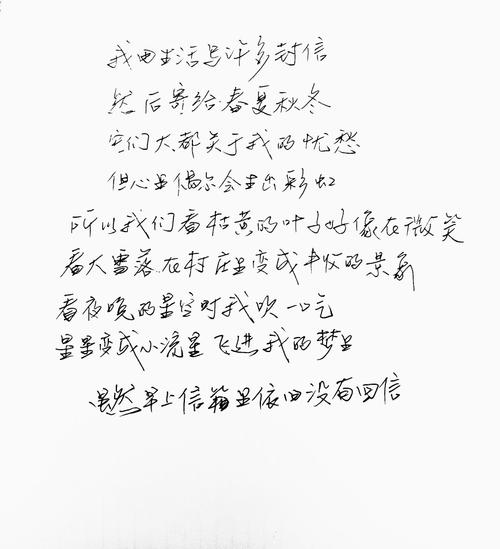 我由生活写许多封信
然后寄给春夏秋冬
它们大都关于我的忧愁
但心里偶尔会生出彩虹
所以我们看枯黄的叶子好像在微笑
看大雪落在村庄里变成丰收的景象
看夜晚的星空对我吹一口气
星星变成小流星飞进我的梦里
虽然早上信箱里依旧没有回信